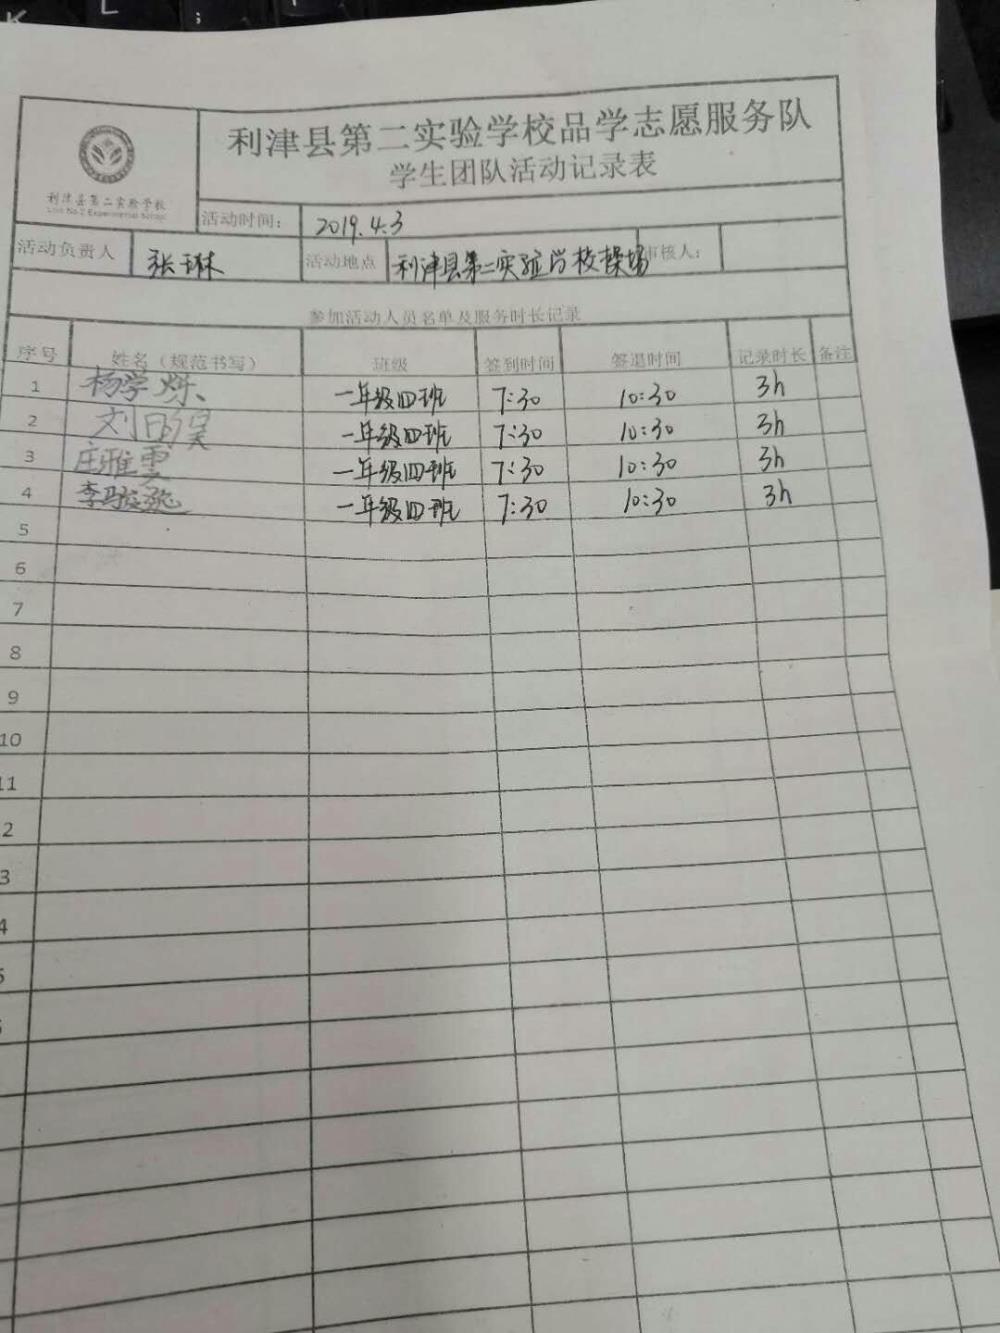 K L ;
利津县第二实验学校品学志愿服务队
学生团队活动记录表
利津县第二实验学校
Lijin No.2 Experimental School
活动时间： 2019.4.3
活动负责人 张琳 活动地点 利津县第二实验学校操场 审核人：
参加活动人员名单及服务时长记录
序号 姓名（规范书写） 班级 签到时间 签退时间 记录时长 备注
1 杨学烁 一年级四班 7:30 10:30 3h
2 刘 昊 一年级四班 7:30 10:30 3h
3 庄雅雯 一年级四班 7:30 10:30 3h
4 李 一年级四班 7:30 10:30 3h
5
6
7
8
9
10
11
2
3
4
5